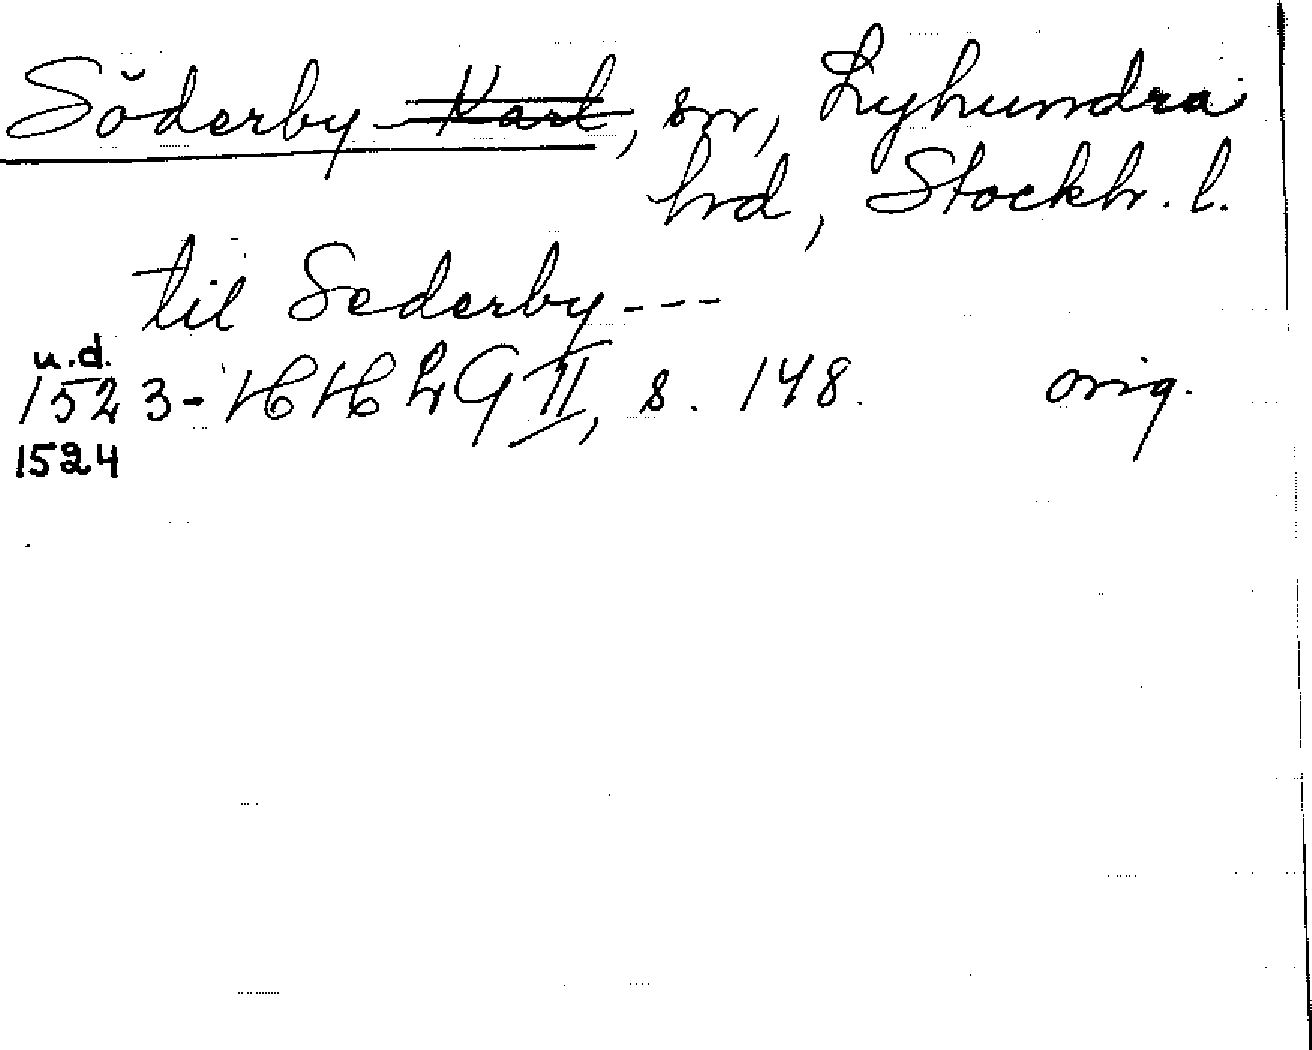 Söderby-Karl, sn, Lyhundra
hd, Stockh. l.
til Sederby---
u.d.
1523- HHLG II, s. 148. orig.
1524